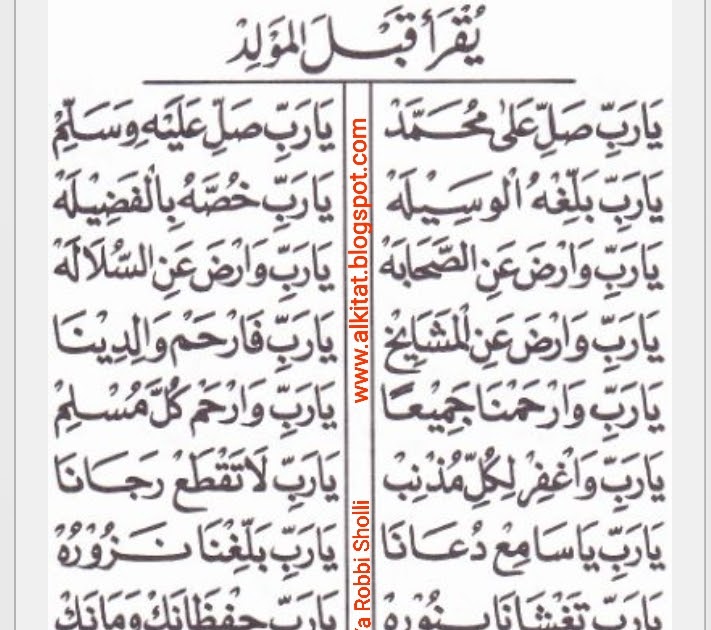 يُقْرَأُ قَبْلَ المَوْلِدْ
يَارَبِّ صَلِّ عَلىٰ مُحَمَّدْ يَارَبِّ صَلِّ عَلَيْهِ وَسَلِّمْ
يَارَبِّ بَلِّغْهُ الْوَسِيْلَهْ يَارَبِّ خُصَّهُ بِالْفَضِيْلَهْ
يَارَبِّ وَارْضَ عَنِ الصَّحَابَهْ يَارَبِّ وَارْضَ عَنِ السُّلَالَهْ
يَارَبِّ وَارْضَ عَنِ الْمَشَايِخْ يَارَبِّ فَارْحَمْ وَالِدِيْنَا
يَارَبِّ وَارْحَمْنَا جَمِيْعًا يَارَبِّ وَارْحَمْ كُلَّ مُسْلِمْ
يَارَبِّ وَاغْفِرْ لِكُلِّ مُذْنِبْ يَارَبِّ لَاتَقْطَعْ رَجَانَا
يَارَبِّ يَاسَامِعْ دُعَانَا يَارَبِّ بَلِّغْنَا نَزُوْرُهْ
يَارَبِّ تَغْشَانَا بِنُوْرِهْ يَارَبِّ حِفْظَانَكْ وَمَانَكْ
www.alkitat.blogspot.com
Ya Robbi Sholli